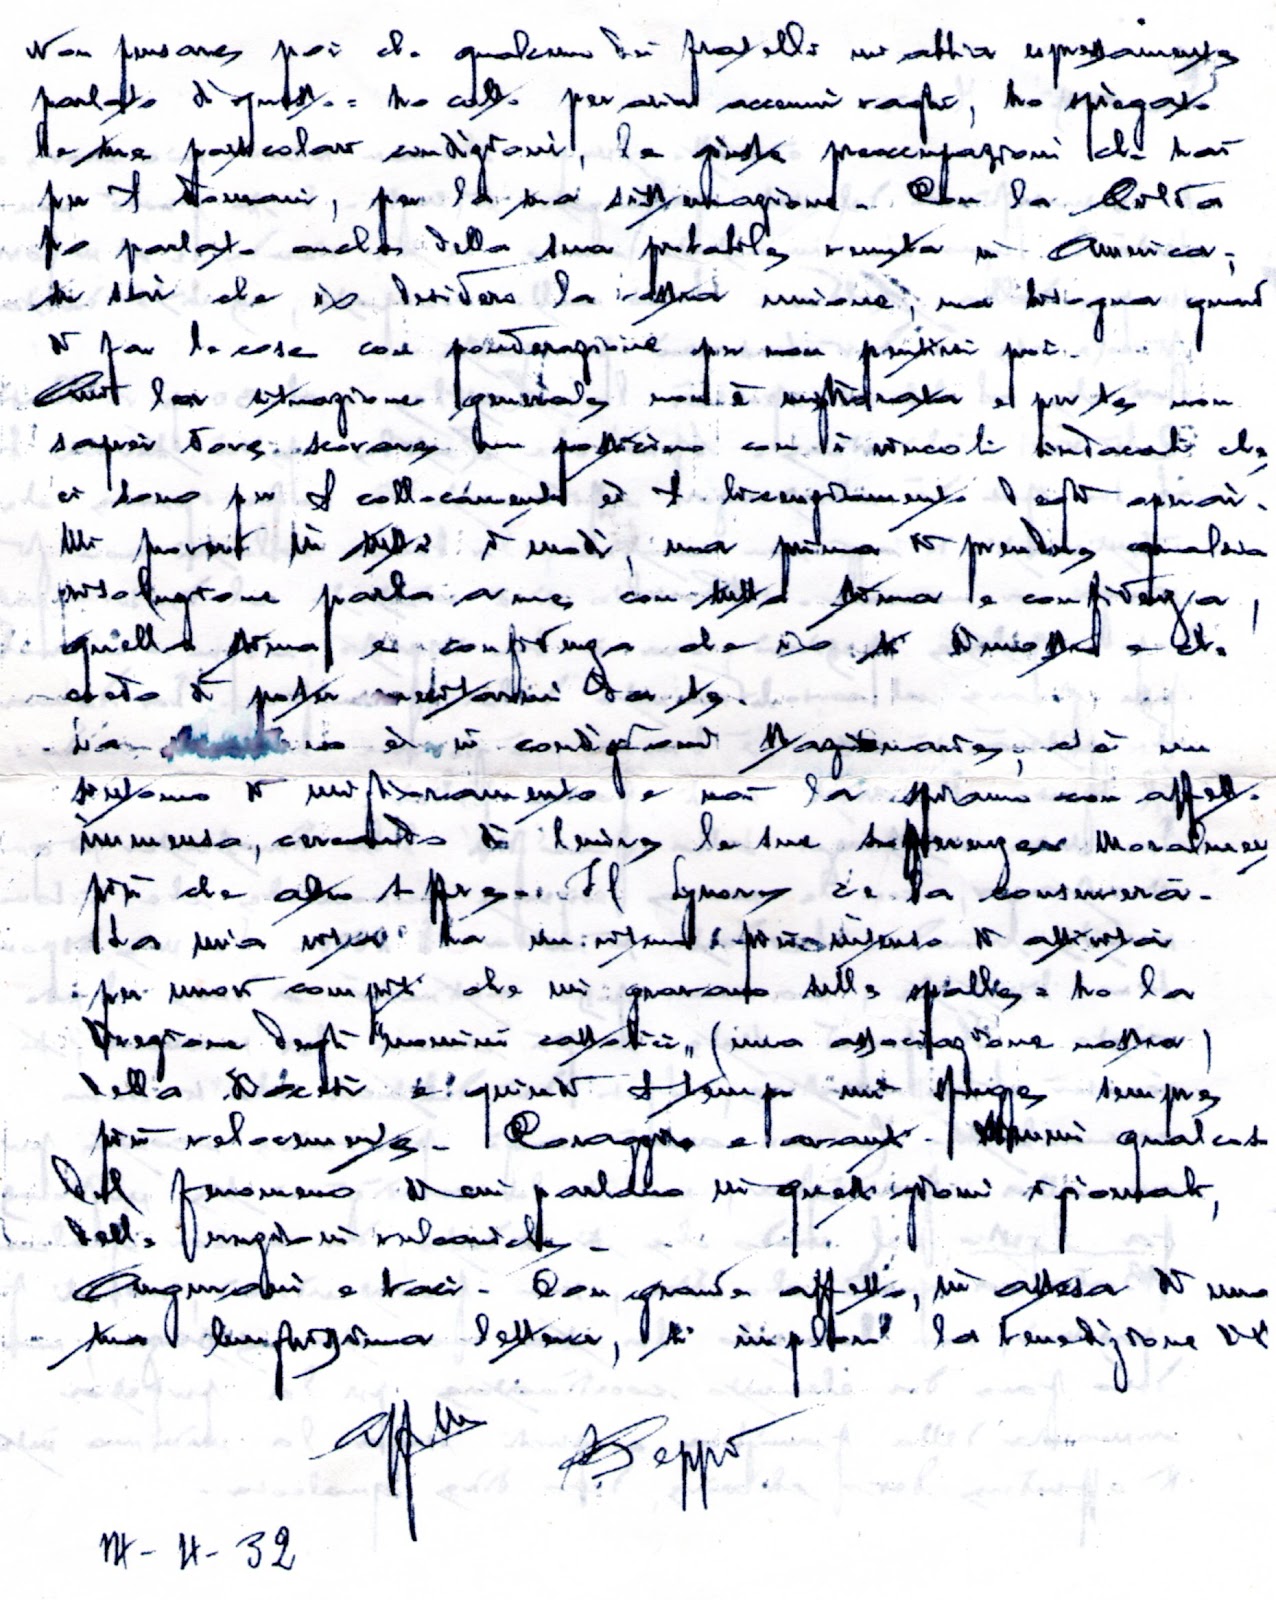 Non pensare poi che qualcuno dei fratelli mi abbia espressamente
parlato di questo = ho colto per accenni vaghi, ho spiegato
le tue particolari condizioni, le giuste preoccupazioni che hai
per il domani, per la tua sistemazione. Con la
ho parlato anche della sua probabile venuta in America;
tu sai che io desidero la vostra unione, ma bisogna
di far le cose con ponderazione per non pentirsi poi.
Qui la situazione generale non è migliorata e per te non
saprei dove scovare un posticino con i vincoli sindacali che
ci sono per il collocamento ed il licenziamento degli operai.
Mi proverò in tutti i modi, ma prima di prendere qualsia
risoluzione parla a me, con tutta stima e confidenza,
quella stima e confidenza che io ti dimostro e che
credo di poter meritarmi da te.
La è in condizioni stazionarie, c'è un
sintomo di miglioramento e noi la con affetto
immenso, cercando di lenire le sue sofferenze
più che altro. Il Signore ce la conserverà.
La mia vita ha un ritmo più intenso di attività
per nuovi compiti che mi gravano sulle spalle = ho la
Direzione degli "uomini cattolici" (una associazione nostra)
della Diocesi e quindi il tempo mi sfugge sempre
più velocemente. Coraggio e avanti. Dimmi qualcosa
del fenomeno di cui parlano in questi giorni i giornali,
delle eruzioni vulcaniche.
Auguroni e baci. Con grande affetto, in attesa di una
tua lunghissima lettera, ti imploro la benedizione di
Aff.mo Beppi
14-4-32